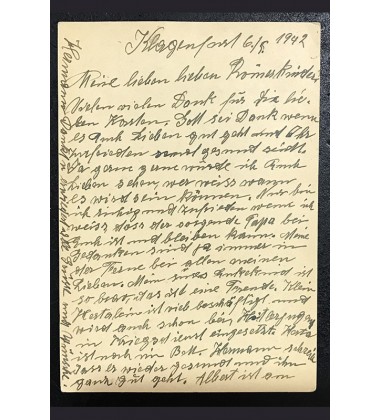 Klagenfurt 6./9. 1942
Meine lieben lieben Römerkinder
Vielen vielen Dank für die lie-
ben Karten. Gott sei Dank wenn
es Euch Lieben gut geht und Ihr
zufrieden und gesund seid.
Ja gerne gerne würde ich Euch
Lieben sehen, wer weiss wann
es wird sein können. Nur bin
ich ruhig und zufrieden wenn ich
weiss dass der sorgende Papa bei
Euch ist und bleiben kann. Meine
Gedanken sind ja immer in
der Ferne bei allen meinen
Lieben. Mein süsses ist
so brav, das ist eine Freude. Klein
ist viel beschäftigt und
wird auch schon bei
im Kriegsdienst eingesetzt.
ist noch im Bett. Hermann schreibt
dass es wieder gesund und ihm
ganz gut geht. Albert ist am
Hermann Grüsse und Wünsche.